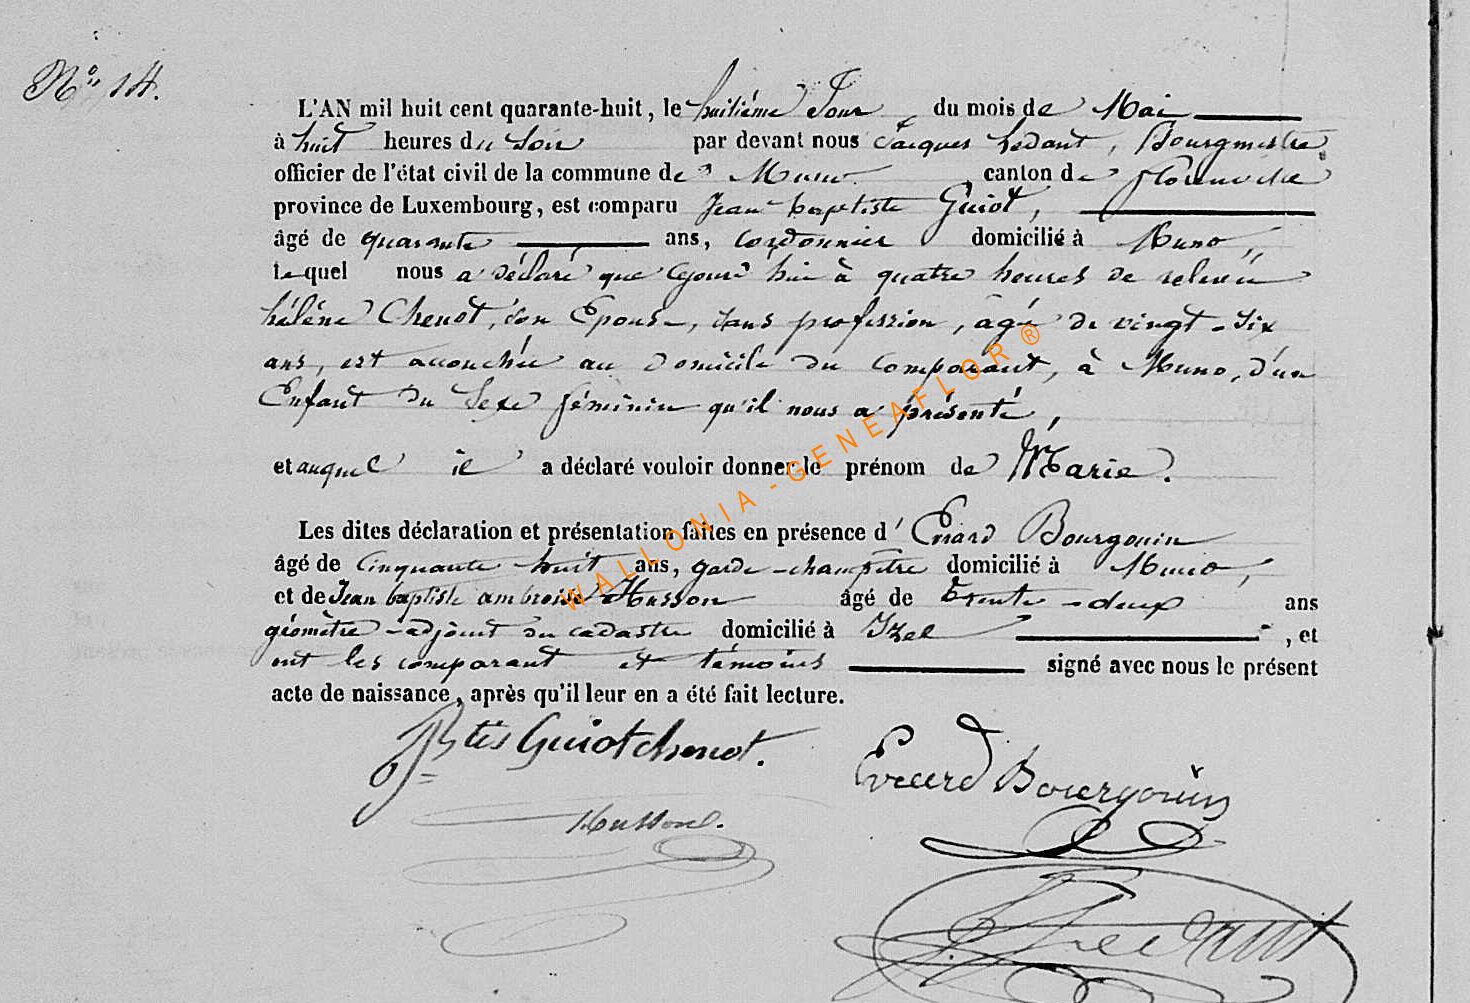 N° 14.
L'AN mil huit cent quarante-huit, le huitiéme Jour du mois de Mai
à huit heures du Soir par devant nous Jacques Ledant, Bourgmestre
officier de l'état civil de la commune de Muno canton de florenville
province de Luxembourg, est comparu Jean baptiste Guiot,
âgé de quarante ans, cordonnier domicilié à Muno,
lequel nous a déclaré que cejourd'hui à quatre heures de relevée
hélène Chenot, son Epouse, sans profession, âgée de vingt-six
ans, est accouchée au domicile du comparant, à Muno, d'un
Enfant du Sexe féminin qu'il nous a présenté,
et auquel il a déclaré vouloir donner le prénom de Marie.
Les dites déclaration et présentation faites en présence d' Evrard Bourgouin
âgé de Cinquante-huit ans, garde-champêtre domicilié à Muno,
et de Jean baptiste ambroise Husson âgé de trente-deux ans
géomètre-adjoint du cadastre domicilié à Izel , et
ont les comparant et témoins signé avec nous le présent
acte de naissance, après qu'il leur en a été fait lecture.
Guiotchenot.
Evrard Bourgouin
Husson.
Ledant
WALLONIA - GENEAFLOR ®